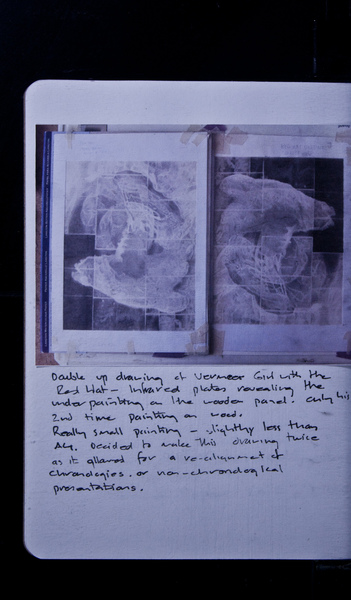 Double up drawing of Vermeer Girl with the
Red Hat - Infrared plates revealing the
underpainting on the wooden panel. only his
2nd time painting on wood.
Really small painting - slightly less than
A4. Decided to make this drawing twice
as it allowed for a re-alignment of
chronologies. or non-chronological
presentations.